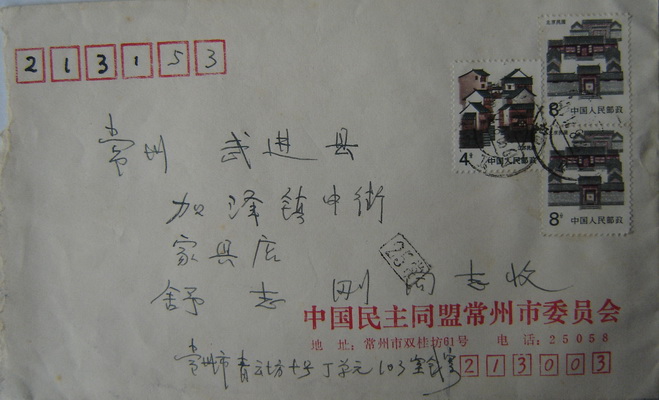 213153
北京民居
8分 中国人民邮政
4分 中国人民邮政
8分 中国人民邮政
常州 武进县
加泽镇中街
家具店
舒志刚 同志收
中国民主同盟常州市委员会
地址：常州市双桂坊61号 电话：25058
常州市青云坊十号丁单元103室
213003